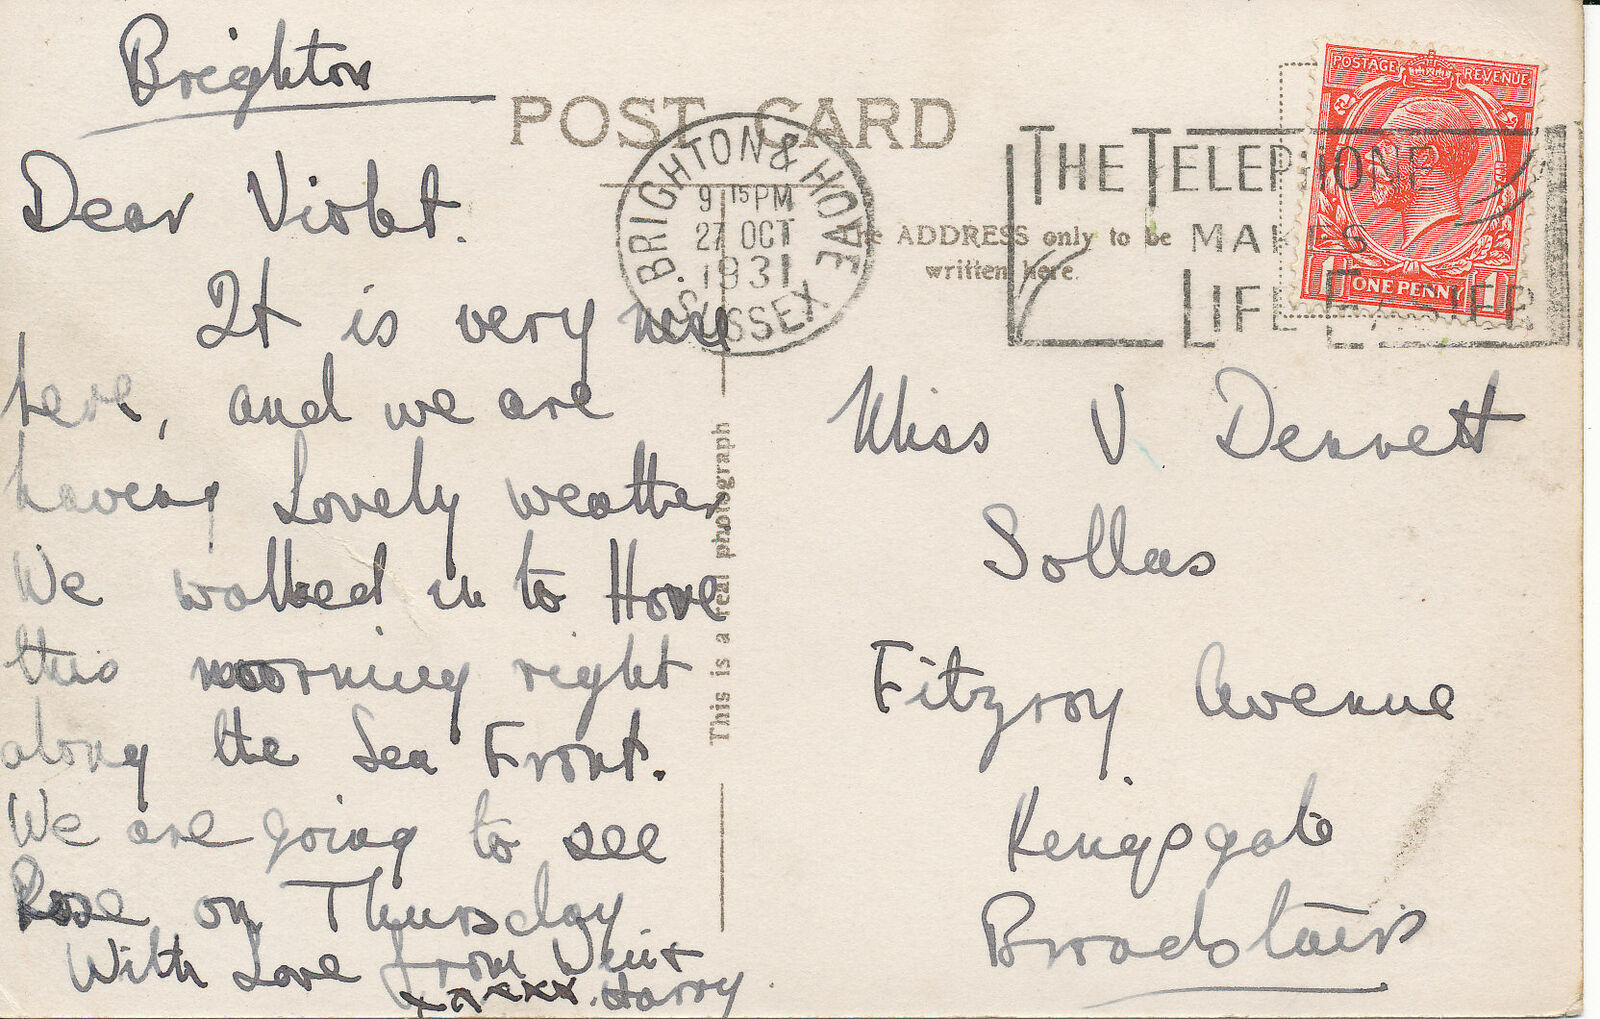 Brighton
POST CARD
BRIGHTON & HOVE
9 15 PM
27 OCT
1931
SUSSEX
THE TELEPHONE
MAKES
LIFE EASIER
POSTAGE REVENUE
1 ONE PENNY 1
The ADDRESS only to be
written here.
This is a real photograph
Dear Violet.
It is very nice
here, and we are
having Lovely weather
We walked in to Hove
this morning right
along the Sea Front.
We are going to see
Rose on Thursday
With Love from
xxxxxx. Harry
Miss V Dennett
Sollas
Fitzroy Avenue
Kingsgate
Broadstairs